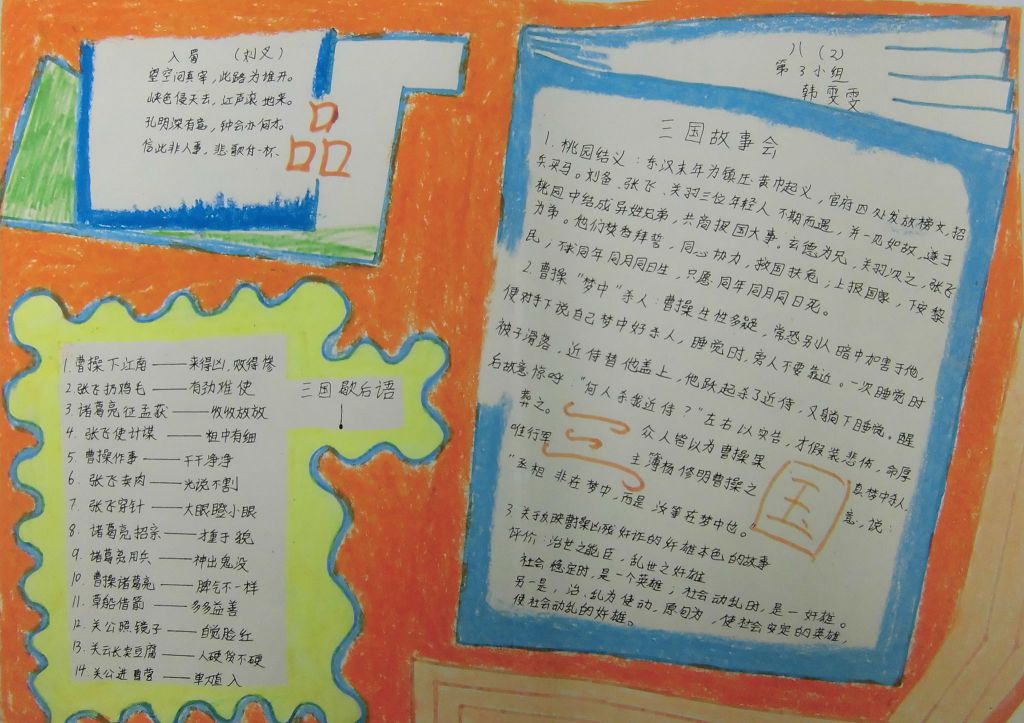 入蜀 （刘义）
望空问真宰，此路为谁开。
峡色侵天去，江声滚地来。
孔明深有意，钟会亦何才。
信此非人事，悲歌付一杯。
品
八（2）
第3小组
韩雯雯
三国故事会
1. 桃园结义：东汉末年为镇压黄巾起义，官府四处发放榜文，招
兵买马。刘备、张飞、关羽三位年轻人不期而遇，并一见如故，遂于
桃园中结成异姓兄弟，共商报国大事。玄德为兄，关羽次之，张飞
为弟。他们焚香拜誓，同心协力，救国扶危；上报国家，下安黎
民；不求同年同月同日生，只愿同年同月同日死。
2. 曹操“梦中”杀人：曹操生性多疑，常恐别人暗中加害于他，
便对手下说自己梦中好杀人，睡觉时，旁人不要靠近。一次睡觉时
被子滑落，近侍替他盖上，他跃起杀了近侍，又躺下睡觉。醒
后故意惊呼：“何人杀我近侍？”左右以实告，才假装悲伤，命厚
葬之。 众人皆以为曹操果 真梦中杀人
唯行军 主簿杨修明曹操之 意，说：
“丞相非在梦中，而是汝等在梦中也。
三国
3. 关于反映曹操凶残奸诈的奸雄本色的故事
评价：治世之能臣，乱世之奸雄
社会稳定时，是一个英雄；社会动乱时，是一奸雄。
另一是，治、乱为使动，原句为，使社会安定的英雄，
使社会动乱的奸雄。
三国歇后语
1. 曹操下江南——来得凶，败得惨
2. 张飞扔鸡毛——有劲难使
3. 诸葛亮征孟获——收收放放
4. 张飞使计谋——粗中有细
5. 曹操作事——干干净净
6. 张飞卖肉——光说不割
7. 张飞穿针——大眼瞪小眼
8. 诸葛亮招亲——才重于貌
9. 诸葛亮用兵——神出鬼没
10. 曹操诸葛亮——脾气不一样
11. 草船借箭——多多益善
12. 关公照镜子——自觉脸红
13. 关云长卖豆腐——人硬货不硬
14. 关公进曹营——单刀直入